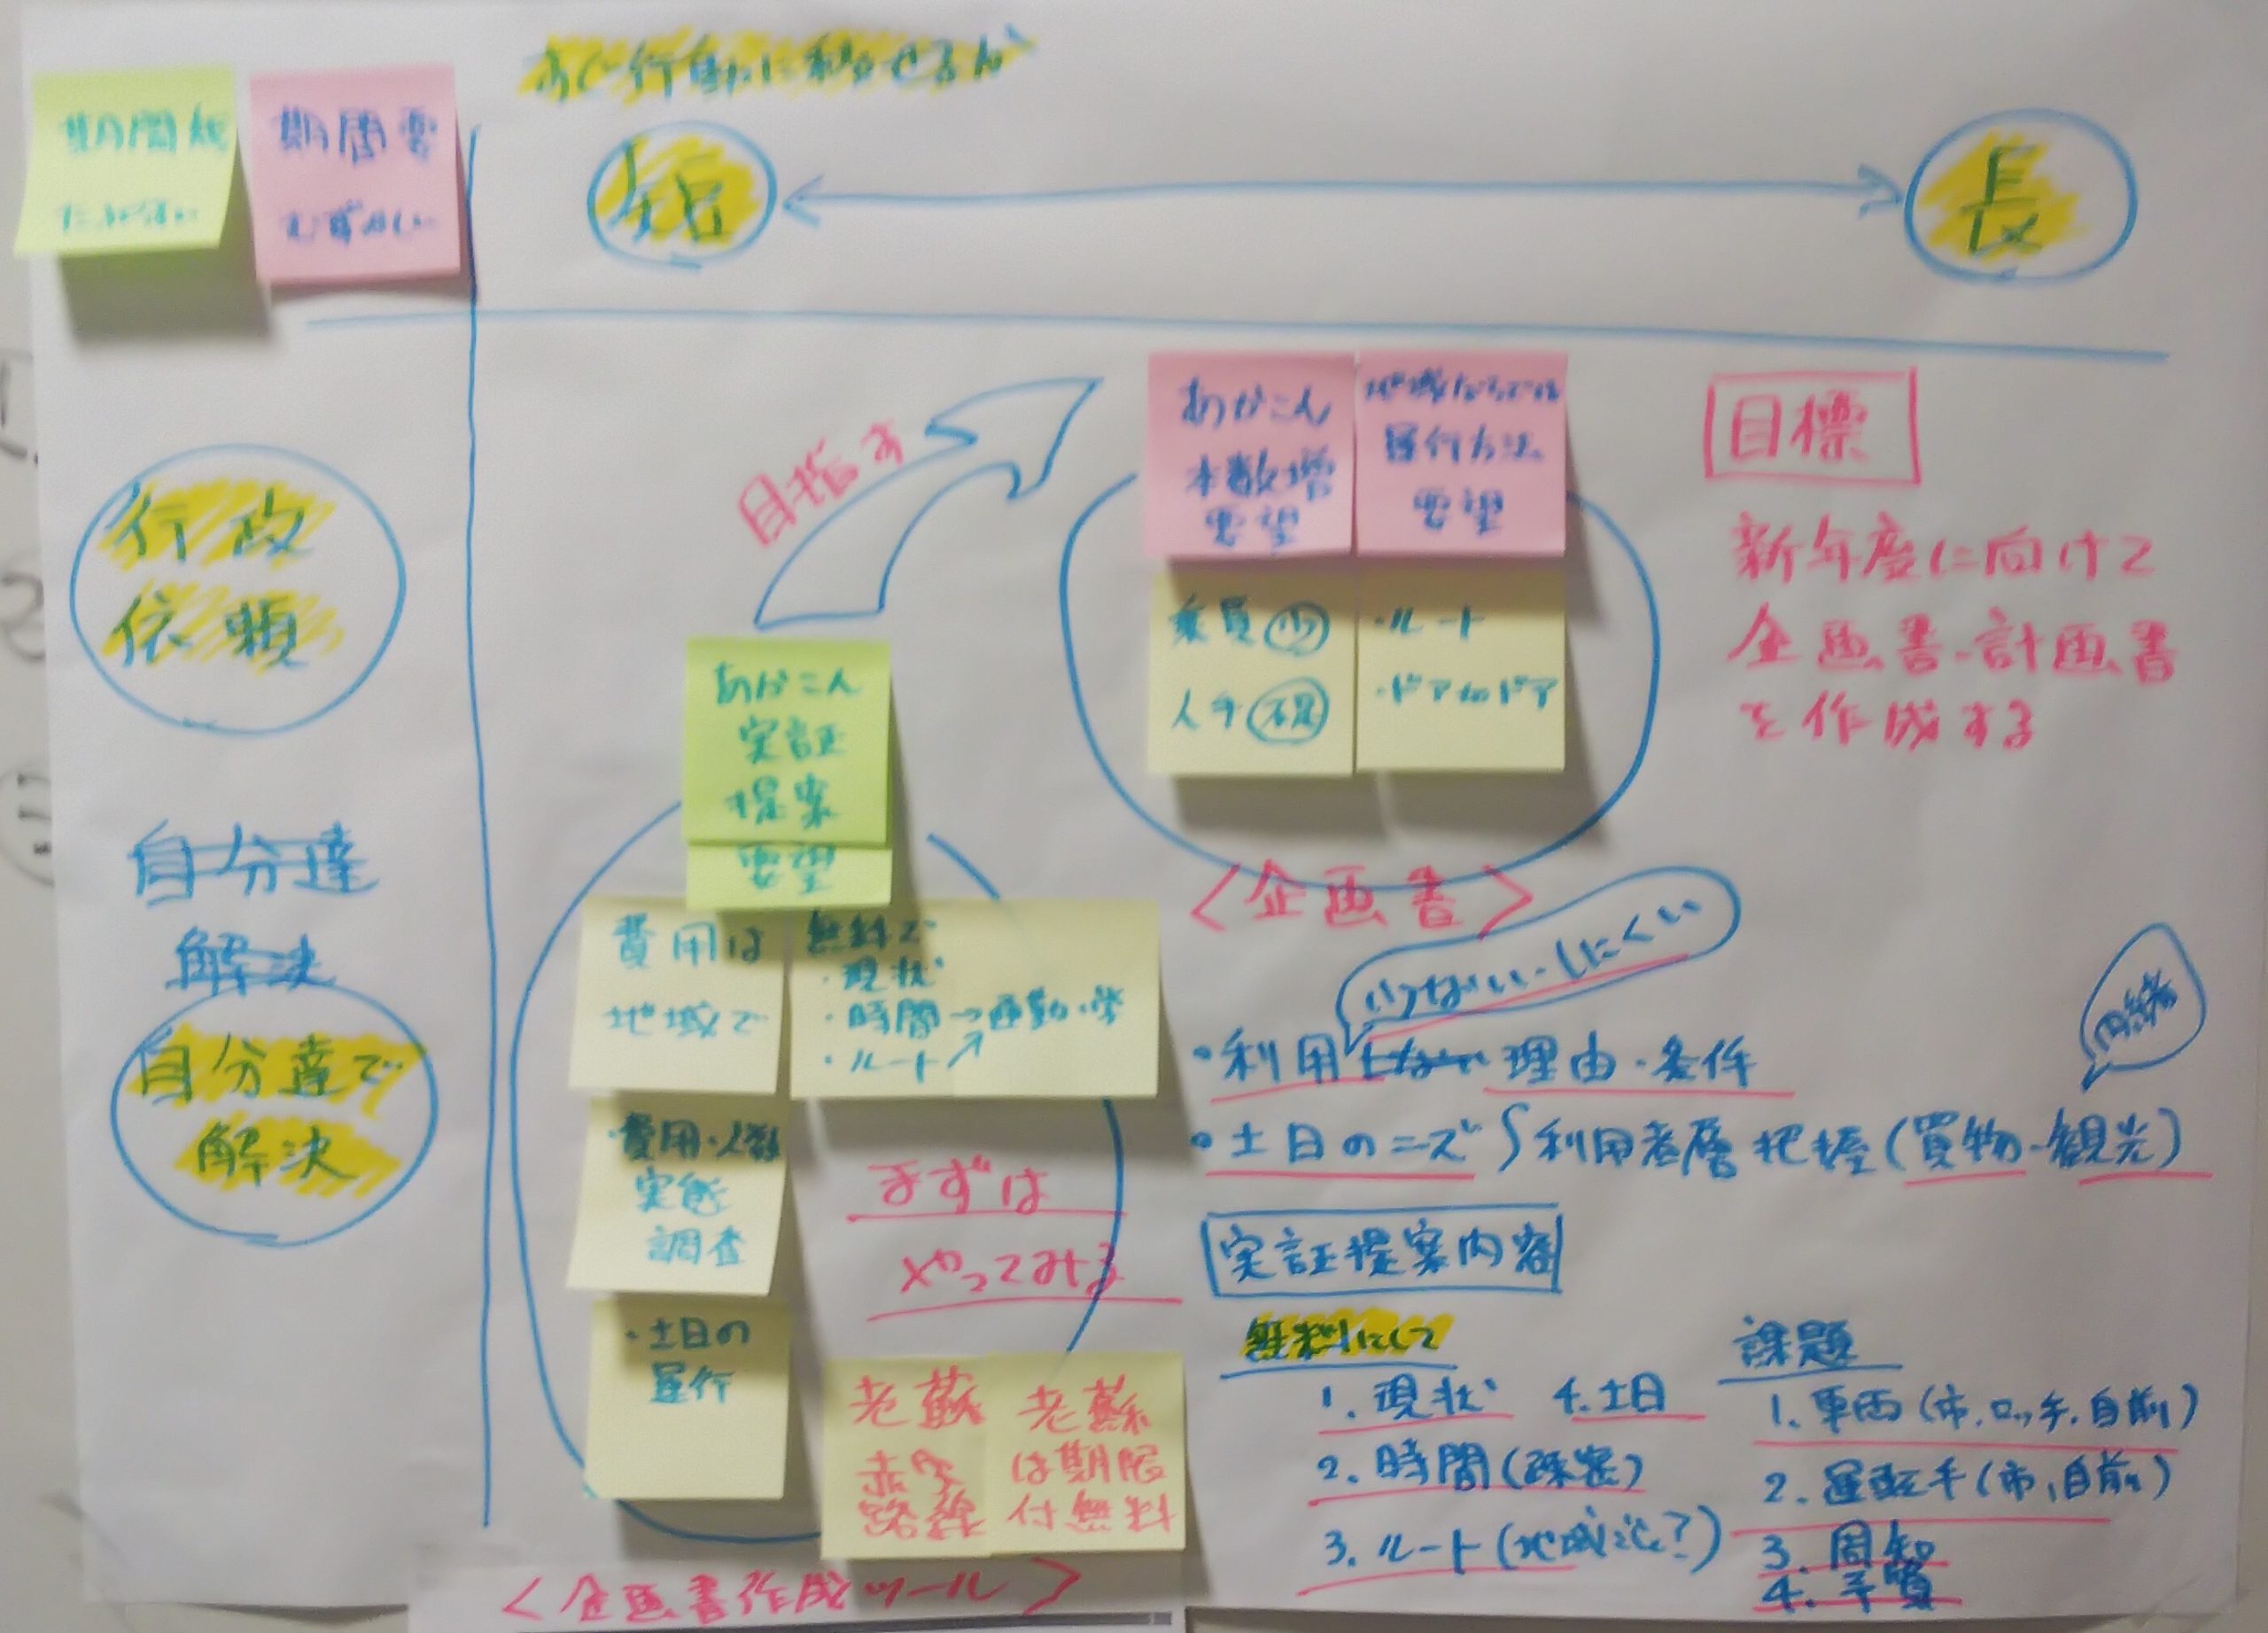 すぐ行動に移せるか
期間短
期間要
むずかしい
短
長
行政
依頼
自分達
解決
自分達で
解決
目指す
あかこん
本数増
要望
地域ならでは
運行方法
要望
乗員少
人手不足
・ルート
・ドアtoドア
目標
新年度に向けて
企画書・計画書
を作成する
あかこん
実証
提案
要望
費用は
地域で
無料で
・現状
・時間→通勤・学
・ルート↗
・費用・人数
実態
調査
・土日の
運行
まずは
やってみる
老蘇
赤字
路線
老蘇
は期限
付無料
<企画書作成ツール>
<企画書>
いけない・しにくい
・利用しない理由・条件
・土日のニーズ 利用者層把握(買物・観光)
実証提案内容
無料にして
1. 現状 4. 土日
2. 時間(疎密)
3. ルート(地域に?)
課題
1. 車両(市、ロッ手、自前)
2. 運転手(市、自前)
3. 周知
4. 予算